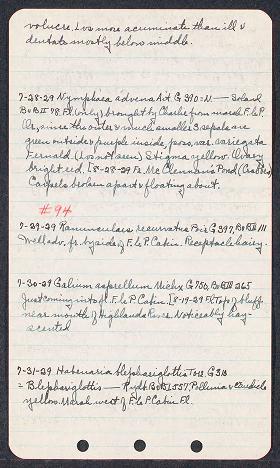 volucre. Lvs more acuminate than ill &
dentate mostly below middle.
7-28-29 Nymphaea advena Ait G 390 = N. — Soland
B&B II 78. Fl. only, brought by Charlie from marsh F. le P.
Ck., since the outer & much smaller 3 sepals are
green outside & purple inside, poss. var. variegata
Fernald (Lvs not seen) Stigma yellow. Ovary
bright red. [8-28-29 Fr. McClennans Pond
Carpels broken apart & floating about.
#94
7-29-29 Ranunculus recurvatus Poir G 397, B&B II 111
Well adv. fr. by side of F. le P. Cabin. Receptacle hairy.
7-30-29 Galium asprellum Michx G 750, B&B III 265
Just coming into fl. F. le P. Cabin. [8-19-29 Fl. Top of bluff
near mouth of Highlands River. Noticeably hay-
scented
7-31-29 Habenaria blephariglottis Torr. G 313
= Blephariglottis — Rydb. B&B I 557, Pollinia & caudicle
yellow. Marsh west of F. le P. Cabin Fl.